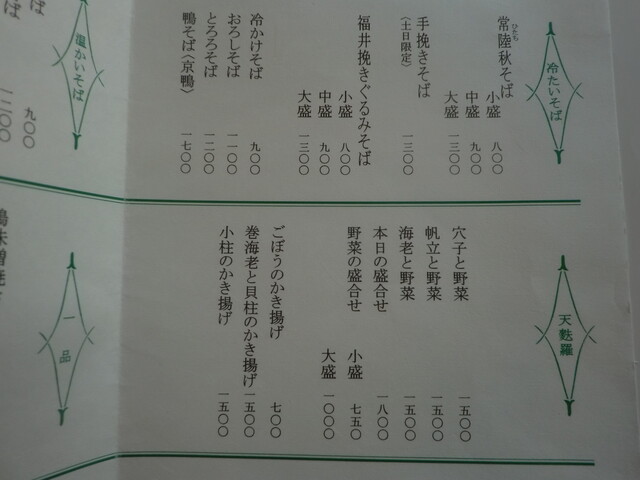 冷たいそば
常陸秋そば
ひたち
小盛 八〇〇
中盛 九〇〇
大盛 一三〇〇
手挽きそば
〈土日限定〉
一三〇〇
福井挽きぐるみそば
小盛 八〇〇
中盛 九〇〇
大盛 一三〇〇
冷かけそば 九〇〇
おろしそば 一一〇〇
とろろそば 一二〇〇
鴨そば〈京鴨〉 一七〇〇
温かいそば
九〇〇
一二〇〇
天麩羅
穴子と野菜 一五〇〇
帆立と野菜 一五〇〇
海老と野菜 一五〇〇
本日の盛合せ 一八〇〇
野菜の盛合せ
小盛 七五〇
大盛 一〇〇〇
ごぼうのかき揚げ 七〇〇
巻海老と貝柱のかき揚げ 一五〇〇
小柱のかき揚げ 一五〇〇
一品